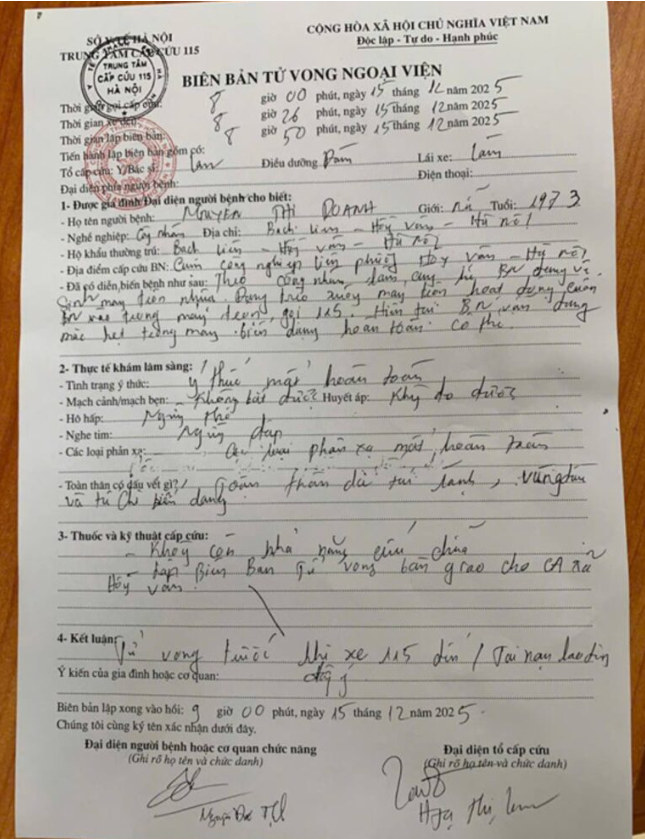 SỞ Y TẾ HÀ NỘI
TRUNG TÂM CẤP CỨU 115
CỘNG HÒA XÃ HỘI CHỦ NGHĨA VIỆT NAM
Độc lập - Tự do - Hạnh phúc
TRUNG TÂM
CẤP CỨU 115
HÀ NỘI
BIÊN BẢN TỬ VONG NGOẠI VIỆN
Thời gian gọi cấp cứu: 8 giờ 00 phút, ngày 15 tháng 12 năm 2025
Thời gian xe đến: 8 giờ 26 phút, ngày 15 tháng 12 năm 2025
Thời gian lập biên bản: 8 giờ 50 phút, ngày 15 tháng 12 năm 2025
Tiến hành lập biên bản gồm có:
Tổ cấp cứu: Y/Bác sĩ: Lan Điều dưỡng Lái xe: Lâm
Đại diện phía người bệnh: Điện thoại:
1- Được gia đình/Đại diện người bệnh cho biết:
- Họ tên người bệnh: NGUYEN THI DOANH Giới: nữ Tuổi: 1973
- Nghề nghiệp: Công nhân Địa chỉ: Bạch Liên - - Hà Nội
- Hộ khẩu thường trú: Bạch Liên - - Hà Nội
- Địa điểm cấp cứu BN: công nghiệp Vân - Hà Nội
- Đã có diễn biến bệnh như sau: Theo công nhân làm cùng BN đang vệ
sinh máy nhựa. Đang xuống máy hoạt động cuốn
BN vào trong máy gọi 115. Hiện tại BN vẫn đang
mắc kẹt trong máy biến dạng hoàn toàn cơ thể.
2- Thực tế khám lâm sàng:
- Tình trạng ý thức: ý thức mất hoàn toàn
- Mạch cảnh/mạch bẹn: - Không bắt được Huyết áp: Không đo được
- Hô hấp: Ngừng thở
- Nghe tim: Ngừng đập
- Các loại phản xạ: Các loại phản xạ mất hoàn toàn
- Toàn thân có dấu vết gì? Toàn thân tái lạnh, vùng đầu
và tứ chi biến dạng
3- Thuốc và kỹ thuật cấp cứu:
- Không còn khả năng cứu chữa
- Lập Biên Bản Tử vong bàn giao cho CA xã
4- Kết luận: Tử vong trước khi xe 115 đến / Tai nạn lao động
Ý kiến của gia đình hoặc cơ quan: đồng ý
Biên bản lập xong vào hồi: 9 giờ 00 phút, ngày 15 tháng 12 năm 2025.
Chúng tôi cùng ký tên xác nhận dưới đây.
Đại diện người bệnh hoặc cơ quan chức năng
(Ghi rõ họ tên và chức danh)
Đại diện tổ cấp cứu
(Ghi rõ họ tên và chức danh)